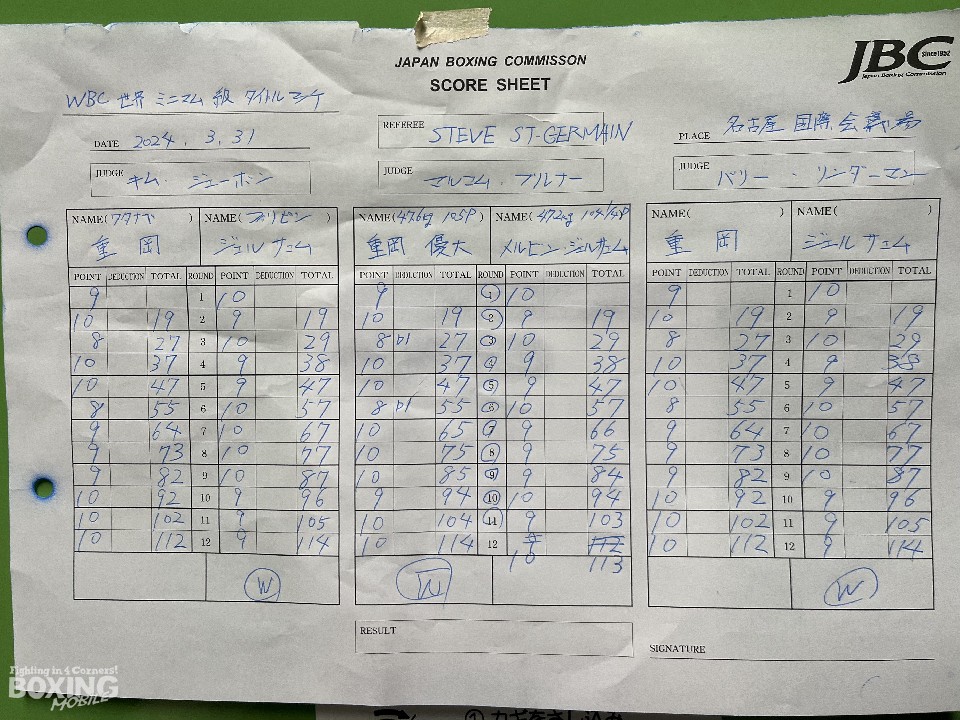 JAPAN BOXING COMMISSON
SCORE SHEET
JBC Since1952
Japan Boxing Commission
WBC 世界 ミニマム 級 タイトルマッチ
DATE 2024. 3. 31
REFEREE STEVE ST-GERMAIN
PLACE 名古屋 国際 会議場
JUDGE キム・ジェーボン
JUDGE マルコム・ブルナー
JUDGE バリー・リンダーマン
NAME(ワタナベ) NAME(フィリピン) NAME(47.6kg 105P) NAME(47.2kg 104 1/4P) NAME( ) NAME( )
重岡 ジェルサエム 重岡 優大 メルビン・ジェルサエム 重岡 ジェルサエム
POINT DEDUCTION TOTAL ROUND POINT DEDUCTION TOTAL POINT DEDUCTION TOTAL ROUND POINT DEDUCTION TOTAL POINT DEDUCTION TOTAL ROUND POINT DEDUCTION TOTAL
9 1 10 9 1 10 9 1 10
10 19 2 9 19 10 19 2 9 19 10 19 2 9 19
8 27 3 10 29 8 D1 27 3 10 29 8 27 3 10 29
10 37 4 9 38 10 37 4 9 38 10 37 4 9 38
10 47 5 9 47 10 47 5 9 47 10 47 5 9 47
8 55 6 10 57 8 D1 55 6 10 57 8 55 6 10 57
9 64 7 10 67 10 65 7 9 66 9 64 7 10 67
9 73 8 10 77 10 75 8 9 75 9 73 8 10 77
9 82 9 10 87 10 85 9 9 84 9 82 9 10 87
10 92 10 9 96 9 94 10 10 94 10 92 10 9 96
10 102 11 9 105 10 104 11 9 103 10 102 11 9 105
10 112 12 9 114 10 114 12 112 10 112 12 9 114
10 113
W W W
RESULT
SIGNATURE
Fighting in 4 Corners!
BOXING
MOBILE